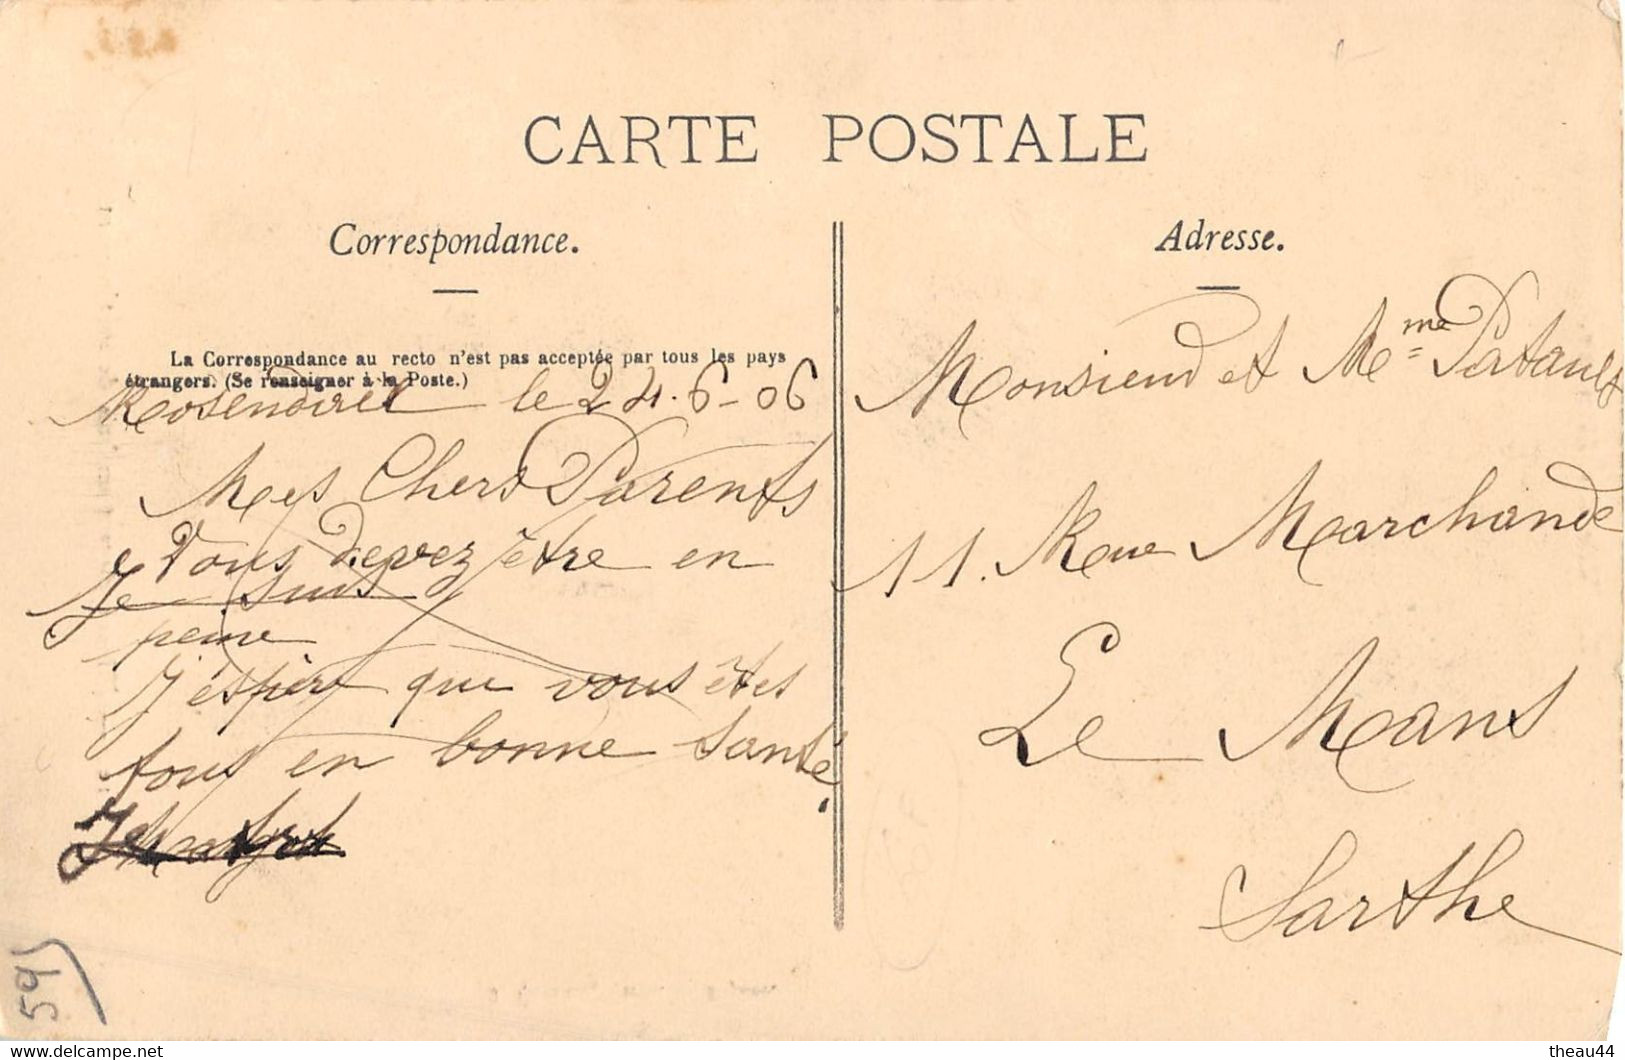 CARTE POSTALE
Correspondance.
La Correspondance au recto n'est pas acceptée par tous les pays
étrangers. (Se renseigner à la Poste.)
Rosendael le 24-6-06
Mes Chers Parents
Vous devez être en
Je suis
peine
J'espère que vous êtes
tous en bonne santé
Adresse.
Monsieur et Mme Patault
11. Rue Marchande
Le Mans
Sarthe
59
theau44